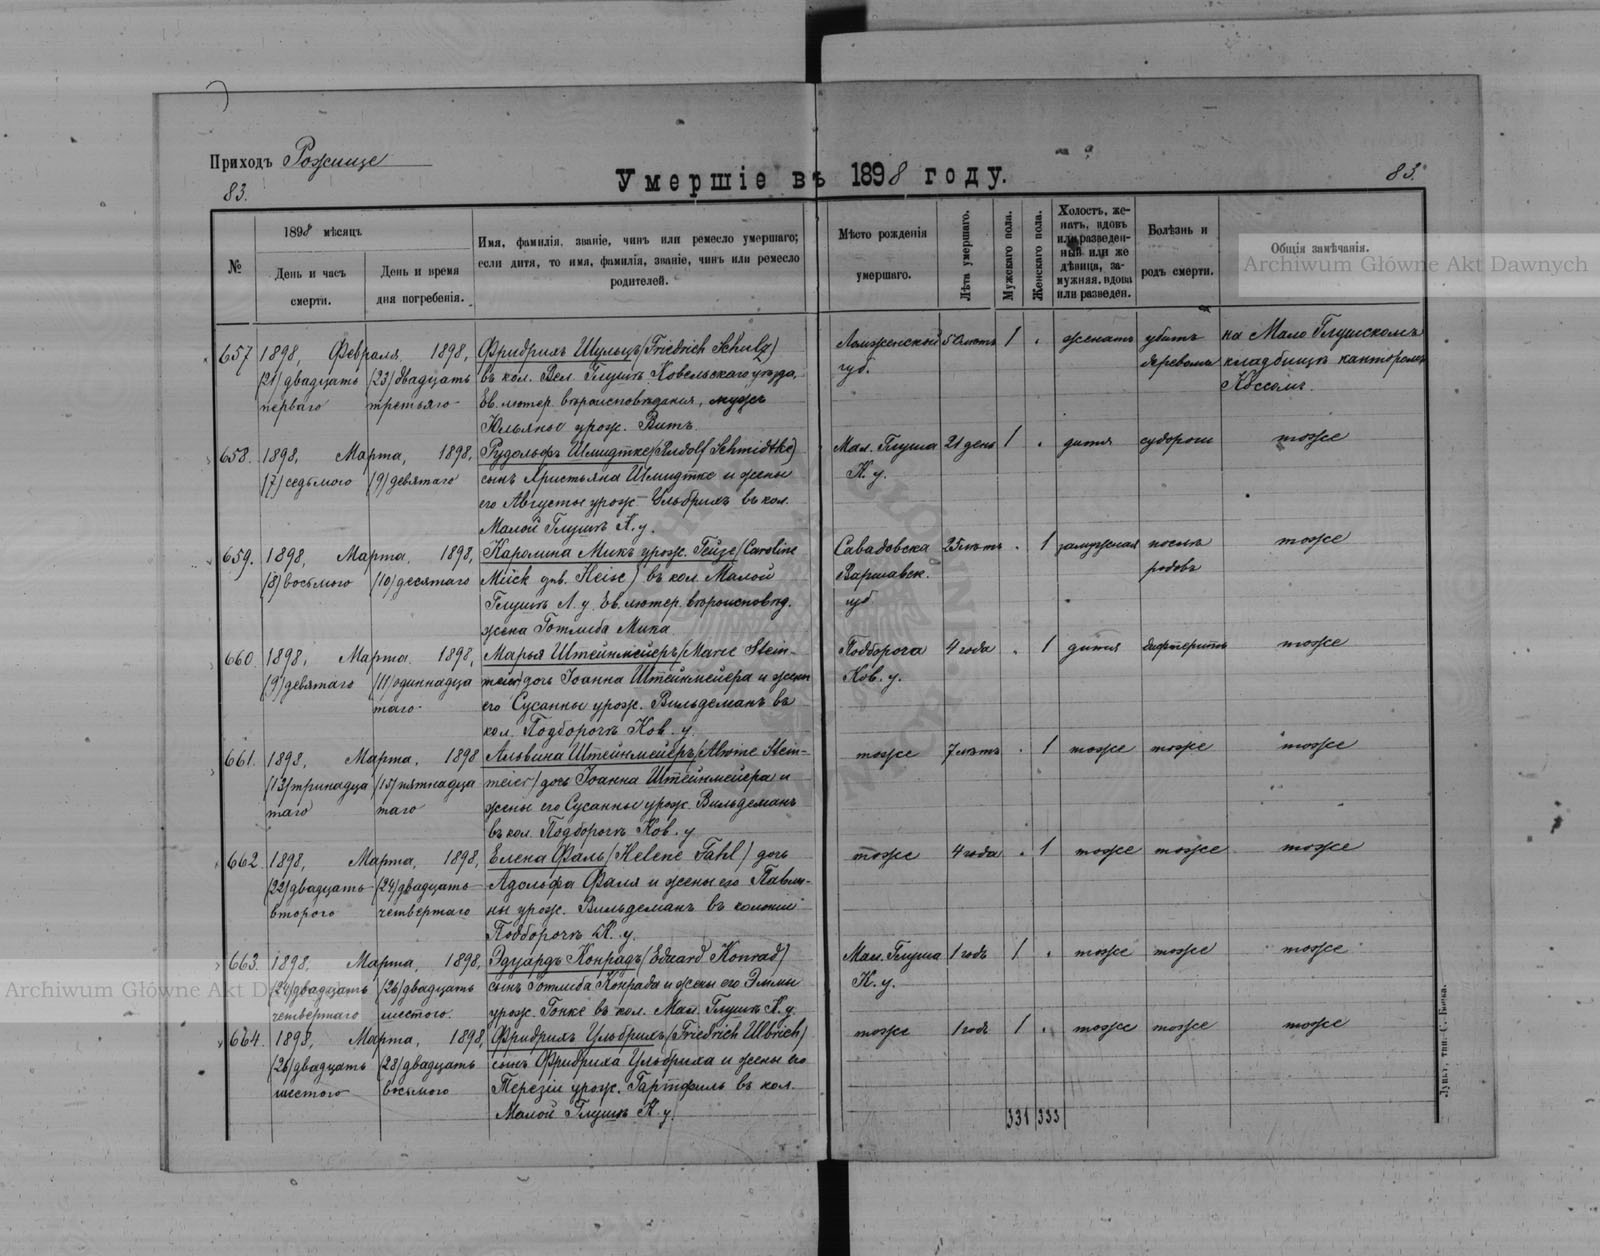 Приходъ Рожище
83.
Умершіе въ 1898 году.
83.
№
1898 мѣсяцъ
День и часъ смерти.
День и время дня погребенія.
Имя, фамилія, званіе, чинъ или ремесло умершаго;
если дитя, то имя, фамилія, званіе, чинъ или ремесло
родителей.
Мѣсто рожденія
умершаго.
Лѣта умершаго.
Мужскаго пола.
Женскаго пола.
Холостъ, же-
натъ, вдовъ
или разведен-
ный или же
дѣвица, за-
мужняя, вдова
или разведен.
Болѣзнь и
родъ смерти.
Общія замѣчанія.
Archiwum Główne Akt Dawnych
657 1898, Февраля 1898, Фридрихъ Шульцъ (Friedrich Schulz) Ломженской лѣтъ 1 женатъ убитъ на Мало Глушскомъ
(21) двадцать (23) двадцать въ кол. Вел. Глушѣ Ковельскаго уѣзда, губ. деревомъ кладбищѣ канторомъ
перваго третьяго Ев. лютер. вѣроисповѣданія, мужъ
Юльяны урож. Витъ.
658. 1898, Марта, 1898, Рудольфъ Шмидтке (Rudolf Schmidtke) Мал. Глуша 21 день 1 дитя судороги тоже
(7) седьмого (9) девятаго сынъ Христьяна Шмидтке и жены К. у.
его Августы урож. Ульбрихъ въ кол.
Малой Глушѣ К. у.
659. 1898, Марта, 1898, Каролина Микъ урож. Гейзе (Caroline 25 лѣтъ 1 замужняя послѣ тоже
(8) восьмого (10) десятаго Mück geb. Heise) въ кол. Малой Варшавск. родовъ
Глушѣ Ев. лютер. вѣроисповѣд. губ
жена Готлиба Мика
660. 1898, Марта 1898, Марья Штейнмейеръ (Marie Stein- Подборога 4 года 1 дитя дифтеритъ тоже
(9) девятаго (11) одиннадца meier) дочь Іоанна Штейнмейера и жены Ков. у.
таго его Сусанны урож. Вильдеманъ въ
кол. Подборогѣ Ков. у.
661. 1898, Марта, 1898 Альвина Штейнмейеръ (Alwine Stein- тоже 7 лѣтъ 1 тоже тоже тоже
(13) тринадца (15) пятнадца meier) дочь Іоанна Штейнмейера и
таго таго жены его Сусанны урож. Вильдеманъ
въ кол. Подборогѣ Ков. у
662. 1898, Марта, 1898, Елена Фаль (Helene Fahl) дочь тоже 4 года 1 тоже тоже тоже
(22) двадцать (24) двадцать Адольфа Фаля и жены его Павли-
второго четвертаго ны урож. Вильдеманъ въ колоніи
Подборогѣ К. у.
663. 1898, Марта, 1898, Эдуардъ Конрадъ (Eduard Konrad) Мал. Глуша 1 годъ 1 тоже тоже тоже
(24) двадцать (26) двадцать сынъ Готлиба Конрада и жены его Эммы К. у.
четвертаго шестого. урож. Гонке въ кол. Мал. Глушѣ К. у.
Archiwum Główne Akt Dawnych
664. 1898, Марта, 1898, Фридрихъ Ульбрихъ (Friedrich Ulbrich) тоже 1 годъ 1 тоже тоже тоже
(26) двадцать (28) двадцать сынъ Фридриха Ульбриха и жены его
шестого восьмого Терезіи урож. Гартфиль въ кол.
Малой Глушѣ К. у.
331 333